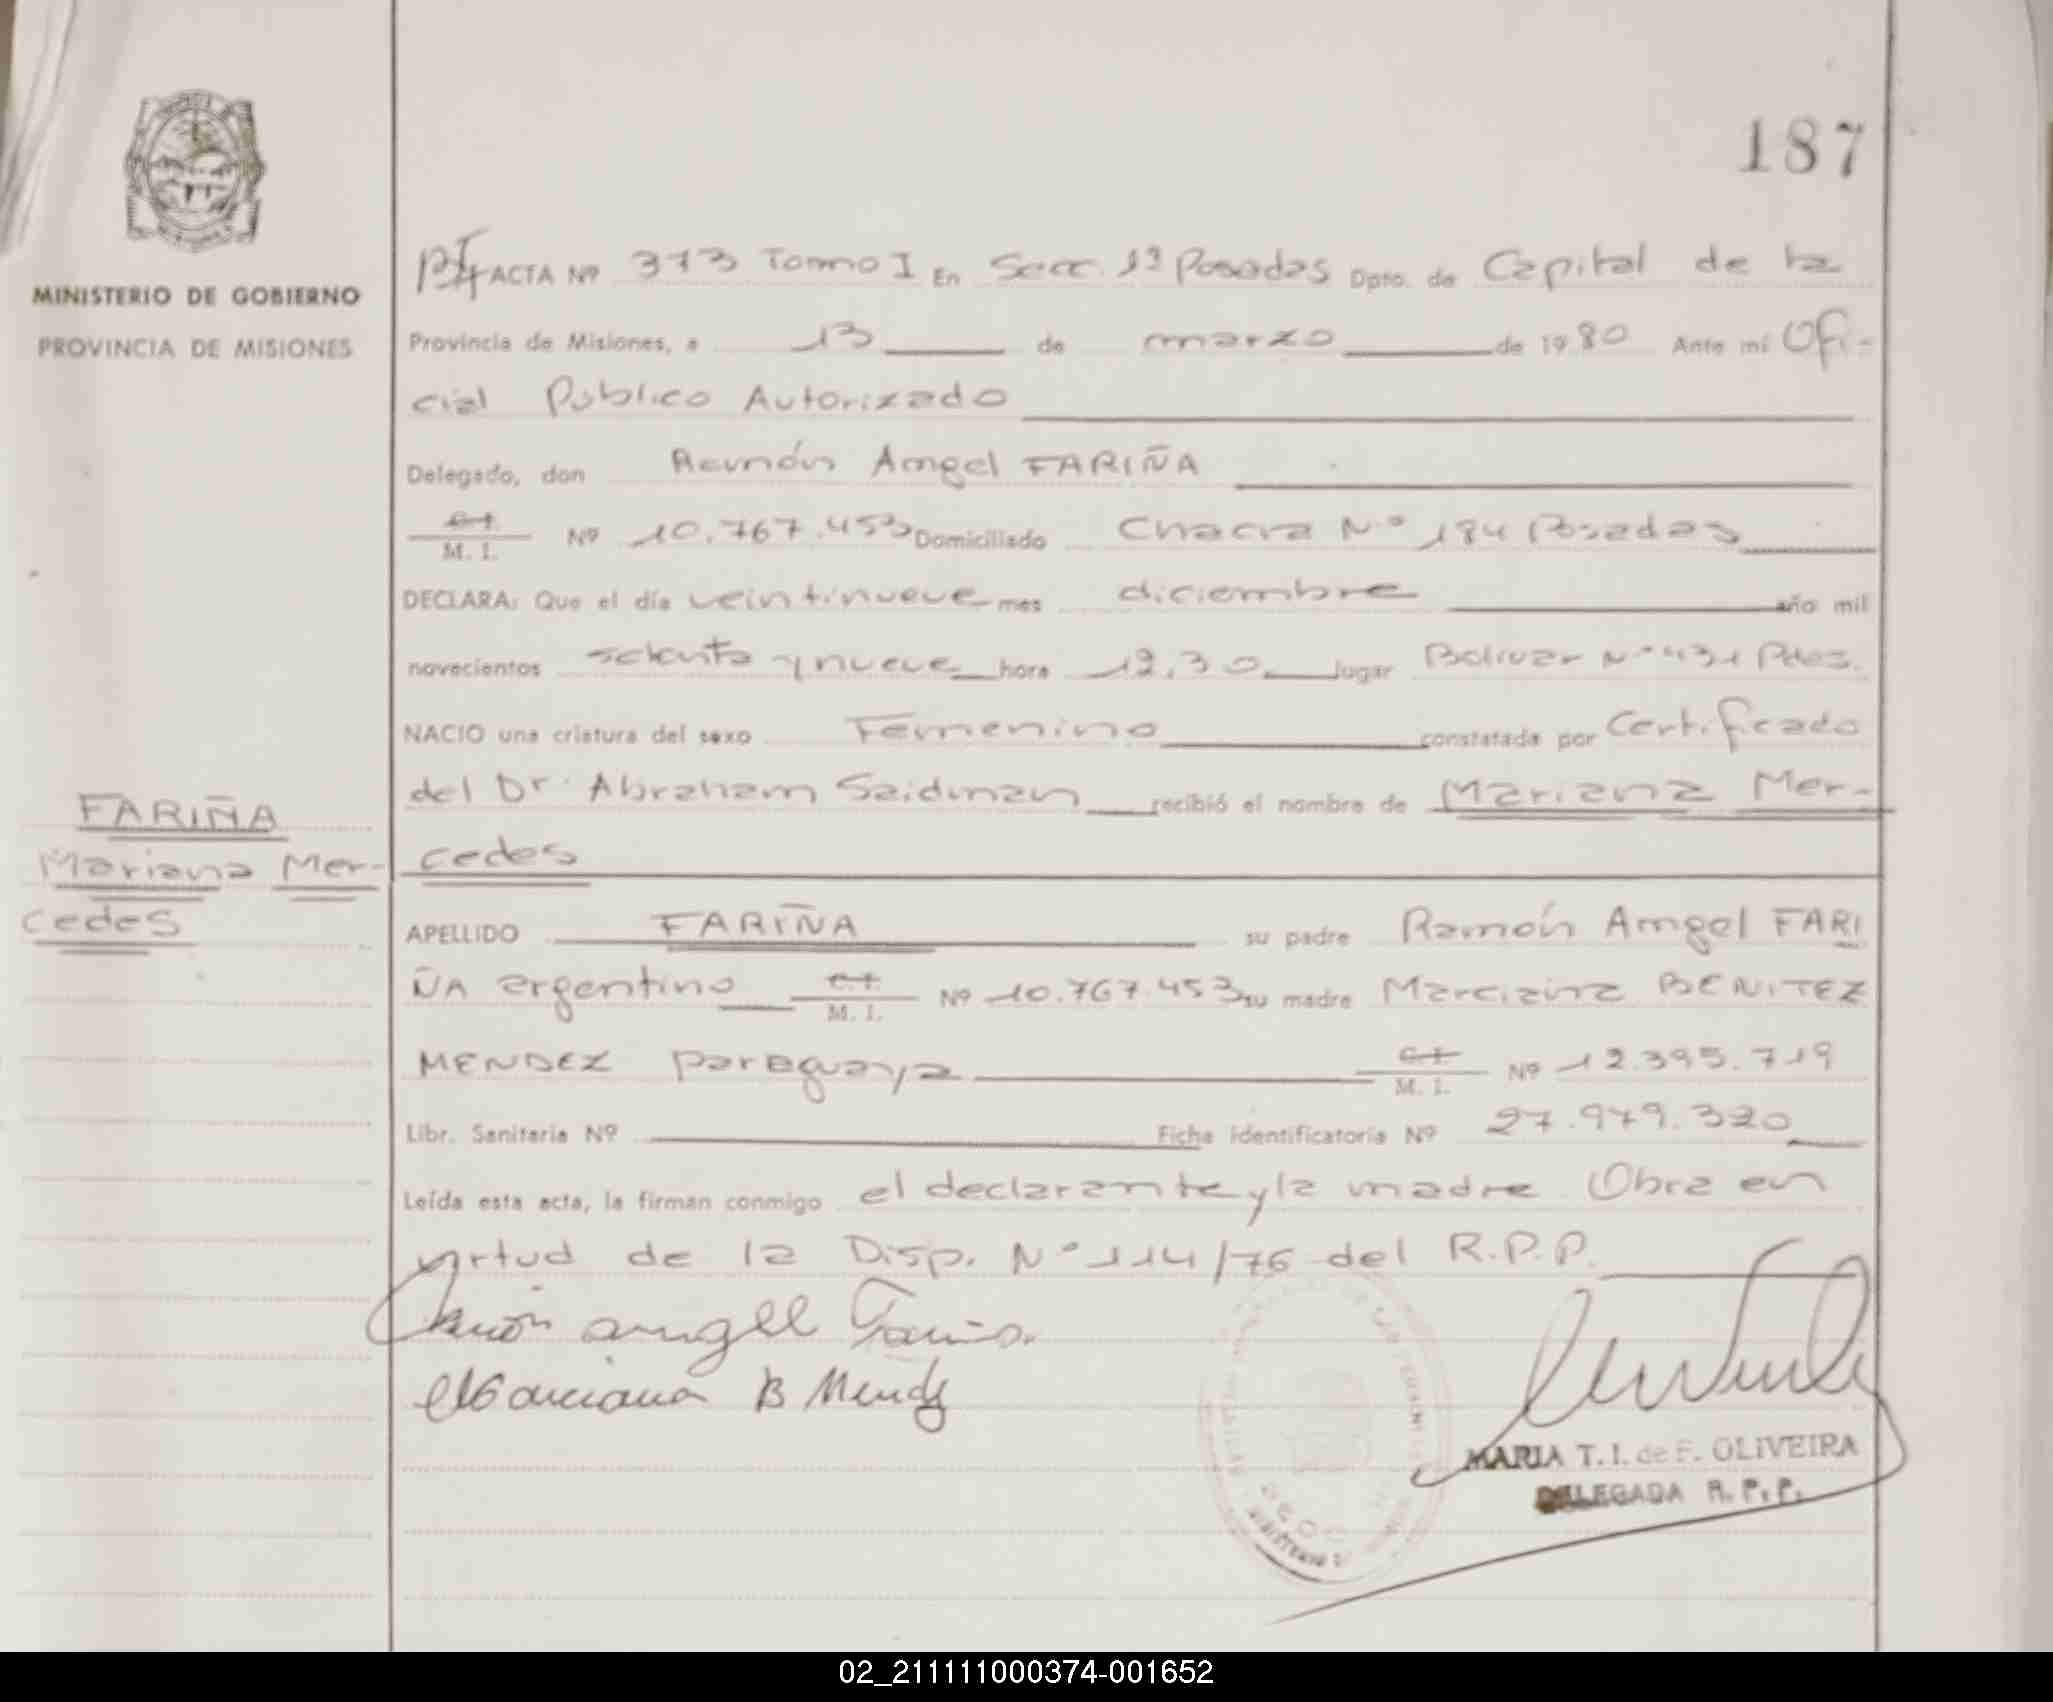 187
MINISTERIO DE GOBIERNO
PROVINCIA DE MISIONES
FARIÑA
Mariana Mer-
cedes
ACTA Nº 373 Tomo I En Secc. 1ª Posadas Dpto. de Capital de la
Provincia de Misiones, a 13 de marzo de 1980 Ante mí Ofi-
cial Público Autorizado
Delegado, don Ramón Angel FARIÑA
M. I. Nº 10.767.453 Domiciliado Chacra N° 184 Posadas
DECLARA: Que el día veintinueve mes diciembre año mil
novecientos setenta y nueve hora 12,30 lugar Bolivar N° 431 Pdas.
NACIO una criatura del sexo Femenino constatada por Certificado
del Dr. Abraham Saidman recibió el nombre de Mariana Mer-
cedes
APELLIDO FARIÑA su padre Ramón Angel FARI
ÑA argentino M. I. Nº 10.767.453 su madre Marciana BENITEZ
MENDEZ paraguaya M. I. Nº 12.395.719
Libr. Sanitaria Nº Ficha identificatoria Nº 27.979.320
Leída esta acta, la firman conmigo el declarante y la madre. Obra en
virtud de la Disp. N° 114/76 del R.P.P.
Ramón angel Fariña
Marciana B Mendez
MARIA T. I. de F. OLIVEIRA
DELEGADA R. P. P.
02_211111000374-001652